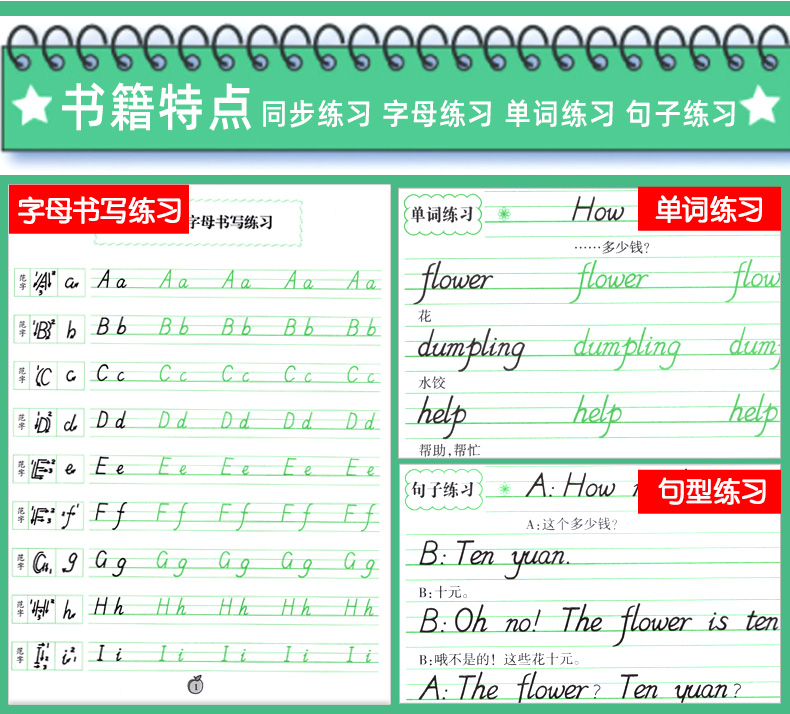 书籍特点 同步练习 字母练习 单词练习 句子练习
字母书写练习
字母书写练习
范字 A a A a A a A a A a A a
范字 B b B b B b B b B b B b
范字 C c C c C c C c C c C c
范字 D d D d D d D d D d D d
范字 E e E e E e E e E e E e
范字 F f F f F f F f F f F f
范字 G g G g G g G g G g G g
范字 H h H h H h H h H h H h
范字 I i I i I i I i I i I i
1
单词练习 How 单词练习
……多少钱?
flower flower flow
花
dumpling dumpling dum
水饺
help help help
帮助,帮忙
句子练习 A: How 句型练习
A:这个多少钱?
B: Ten yuan.
B:十元。
B: Oh no! The flower is ten
B:哦不是的!这些花十元。
A: The flower? Ten yuan?